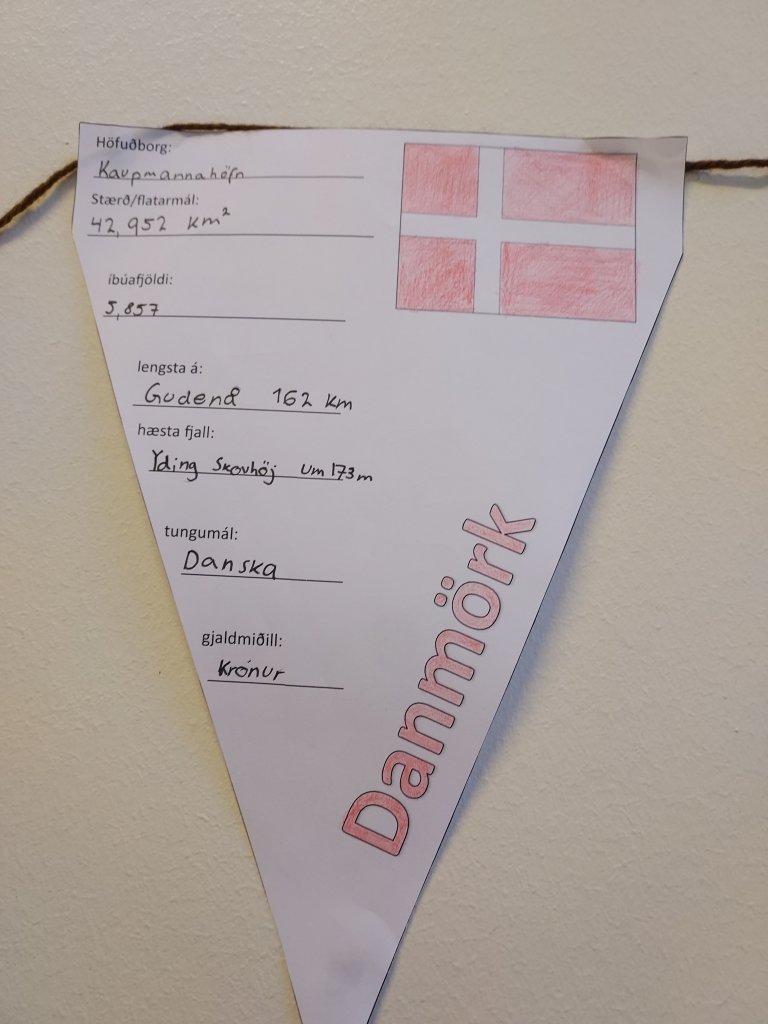 Höfuðborg:
Kaupmannahöfn
Stærð/flatarmál:
42,952 km²
íbúafjöldi:
5,857
lengsta á:
Gudenå 162 km
hæsta fjall:
Yding Skovhöj um 173 m
tungumál:
Danska
gjaldmiðill:
Krónur
Danmörk